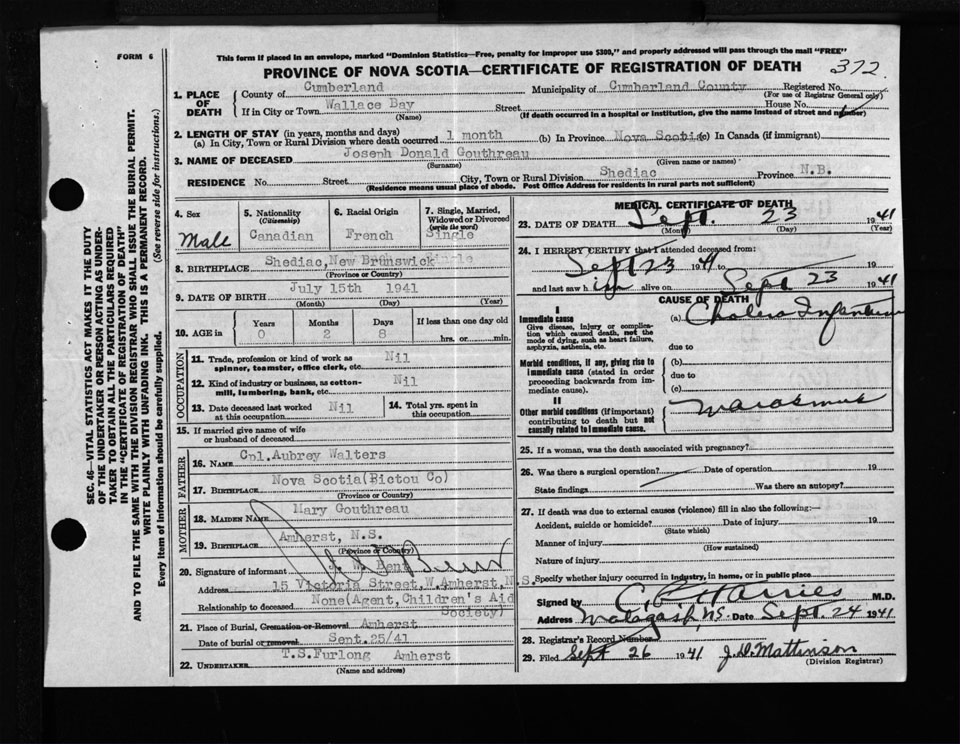 FORM 6
This form if placed in an envelope, marked "Dominion Statistics—Free, penalty for improper use $300," and properly addressed will pass through the mail "FREE"
PROVINCE OF NOVA SCOTIA—CERTIFICATE OF REGISTRATION OF DEATH
372
SEC. 46—VITAL STATISTICS ACT MAKES IT THE DUTY
OF THE UNDERTAKER OR PERSON ACTING AS UNDER-
TAKER TO OBTAIN ALL THE PARTICULARS REQUIRED
IN THE "CERTIFICATE OF REGISTRATION OF DEATH"
AND TO FILE THE SAME WITH THE DIVISION REGISTRAR WHO SHALL ISSUE THE BURIAL PERMIT.
WRITE PLAINLY WITH UNFADING INK. THIS IS A PERMANENT RECORD.
Every item of information should be carefully supplied. (See reverse side for instructions.)
1. PLACE OF DEATH
County of Cumberland Municipality of Cumberland County Registered No.
(For use of Registrar General only)
If in City or Town Wallace Bay Street House No.
(Name) (If death occurred in a hospital or institution, give the name instead of street and number)
2. LENGTH OF STAY (in years, months and days)
(a) In City, Town or Rural Division where death occurred 1 month (b) In Province Nova Scotia (c) In Canada (if immigrant)
3. NAME OF DECEASED Joseph Donald Gouthreau
(Surname) (Given name or names)
RESIDENCE No. Street City, Town or Rural Division Shediac Province N.B.
(Residence means usual place of abode. Post Office Address for residents in rural parts not sufficient)
4. Sex Male
5. Nationality (Citizenship) Canadian
6. Racial Origin French
7. Single, Married, Widowed or Divorced (write the word) Single
8. BIRTHPLACE Shediac, New Brunswick
(Province or Country)
9. DATE OF BIRTH July 15th 1941
(Month) (Day) (Year)
10. AGE in Years Months Days If less than one day old
0 2 8 hrs. or min.
OCCUPATION
11. Trade, profession or kind of work as spinner, teamster, office clerk, etc. Nil
12. Kind of industry or business, as cotton-mill, lumbering, bank, etc. Nil
13. Date deceased last worked at this occupation Nil
14. Total yrs. spent in this occupation
15. If married give name of wife or husband of deceased
FATHER
16. Name Cpl. Aubrey Walters
17. BIRTHPLACE Nova Scotia(Bictou Co)
(Province or Country)
MOTHER
18. MAIDEN NAME Mary Gouthreau
19. BIRTHPLACE Amherst, N.S.
(Province or Country)
20. Signature of informant
Address 15 Victoria Street, W.Amherst, N.S.
Relationship to deceased None(Agent, Children's Aid Society)
21. Place of Burial, Cremation or Removal Amherst
Date of burial or removal Sept.25/41
22. UNDERTAKER T.S.Furlong Amherst
(Name and address)
MEDICAL CERTIFICATE OF DEATH
23. DATE OF DEATH Sept. 23 1941
(Month) (Day) (Year)
24. I HEREBY CERTIFY that I attended deceased from:
Sept 23 1941 to 19
and last saw him alive on Sept 23 1941
CAUSE OF DEATH
I
Immediate cause (a) Cholera Infantum
Give disease, injury or complication which caused death, not the mode of dying, such as heart failure, asphyxia, asthenia, etc.
due to
Morbid conditions, if any, giving rise to immediate cause (stated in order proceeding backwards from immediate cause).
(b)
due to
(c)
II
Other morbid conditions (if important) contributing to death but not causally related to immediate cause.
Marasmus
25. If a woman, was the death associated with pregnancy?
26. Was there a surgical operation? Date of operation 19
State findings Was there an autopsy?
27. If death was due to external causes (violence) fill in also the following:—
Accident, suicide or homicide? Date of injury 19
(State which)
Manner of injury
(How sustained)
Nature of injury
Specify whether injury occurred in industry, in home, or in public place
Signed by Harries M.D.
Address Malagash, NS. Date Sept. 24 1941
28. Registrar's Record Number
29. Filed Sept 26 1941 J.D. Mattinson
(Division Registrar)